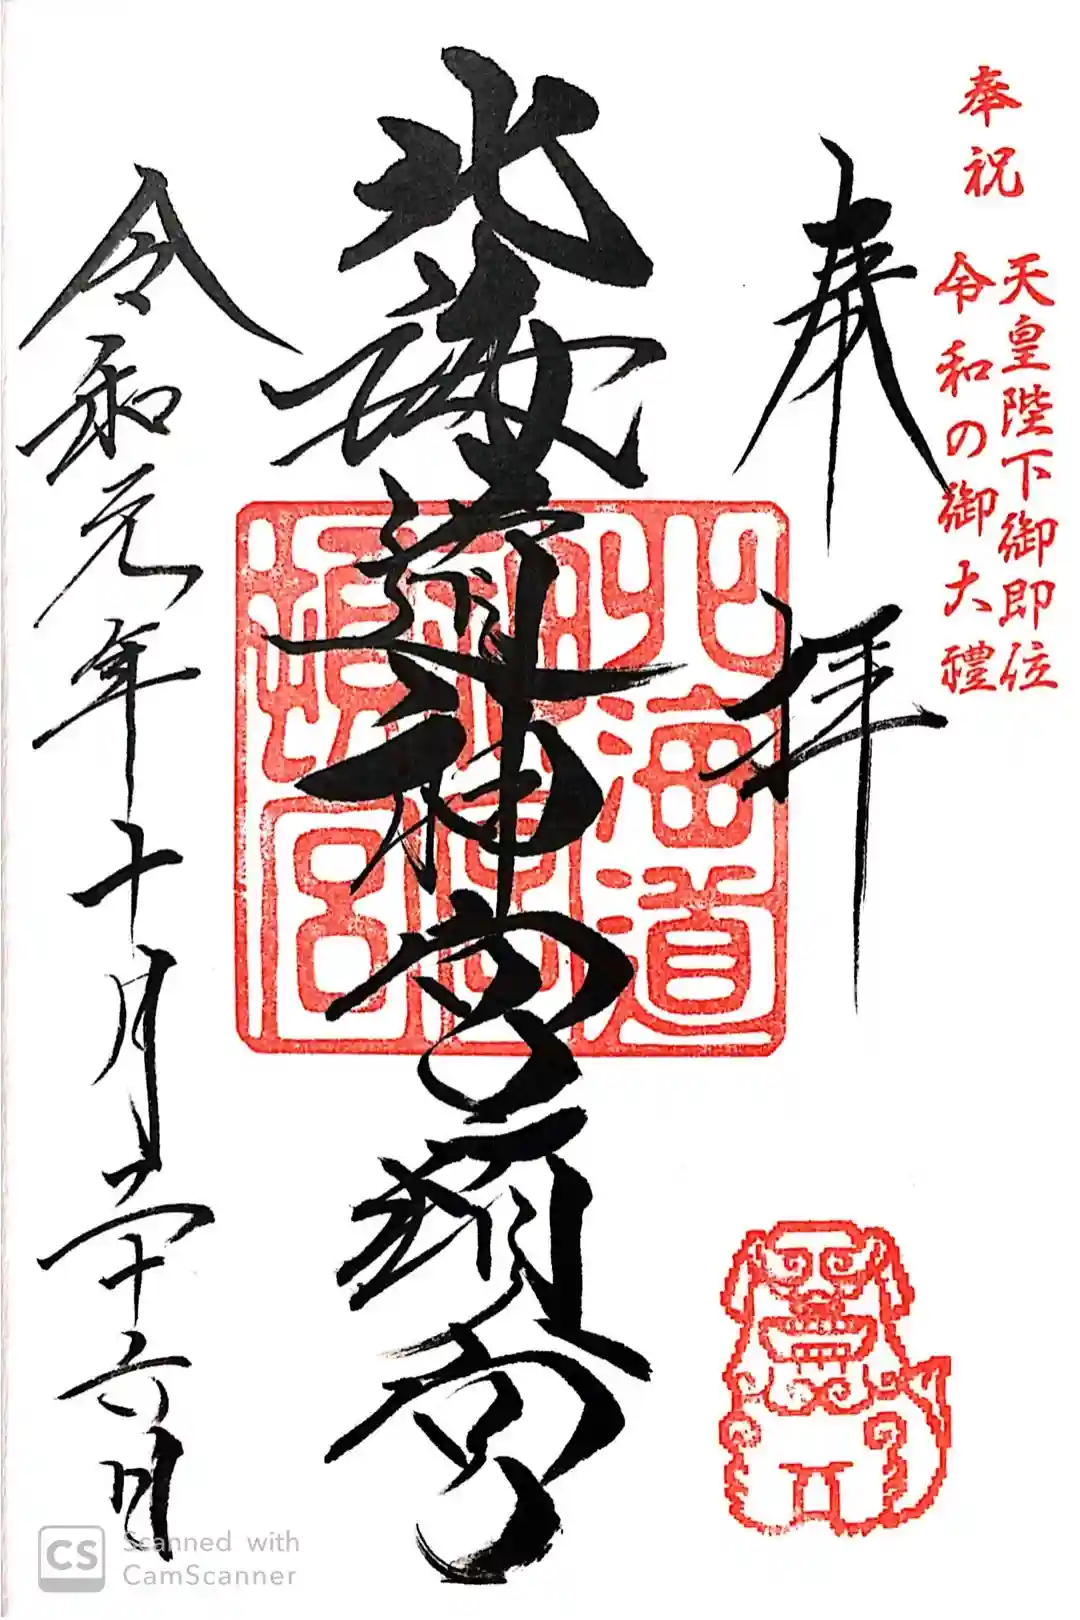 奉祝
天皇陛下御即位
令和の御大禮
奉拝
北海道神宮頓宮
北海道
神宮
頓宮
令和元年十月二十六日
CS Scanned with
CamScanner